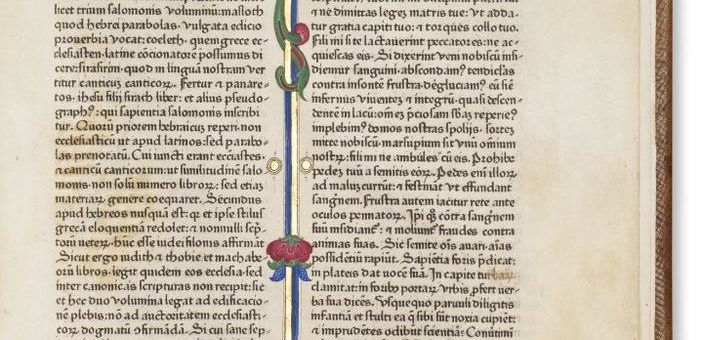 licet trium salomonis voluminū: masloth
quod hebrei parabolas. vulgata edicio
proverbia vocat: coeleth. quem grece ec-
clesiasten. latine cōcionatorē possumus di
cere: sirasirim. quod in linguā nostram ver
titur canticū canticoꝝ. Fertur & panare-
tos. ihesu filij sirach liber: et alius pseudo-
graphꝰ: qui sapientia salomonis inscribi
tur. Quoꝝ priorem hebraicum reperi. non
ecclesiasticū ut apud latinos: sed parabo-
las prenotatū. Cui iuncti erant ecclastes.
& canticū canticorum: ut similitudinē salo
monis. non solū numero libroꝝ: sed etiā
materiaꝝ genere coequaret. Secundus
apud hebreos nusquā est: qꝛ et ipse stilus
grecā eloquentiā redolet: & nonnulli scrip
toꝝ veteꝝ hūc esse iudei filonis affirmāt
Sicut ergo iudith & thobie et machabe-
oꝝ libros. legit quidem eos ecclesia. sed
inter canonicas scripturas non recipit: sic
et hec duo volumina legat ad edificacio-
nē plebis: nō ad auctoritatem ecclesiasti-
coꝝ dogmatū ꝯfirmādā. Si cui sane sep-
& ne dimittas legē matris tue: ut adda-
tur gratia capiti tuo: & torques collo tuo.
Fili mi si te lactaverint peccatores: ne ac-
quiescas eis. Si dixerint veni nobiscū insi-
diemur sanguini. abscondamꝰ tendiclas
contra insontē frustra. deglutiamꝰ eū sicut
infernus viventē & integrū. quasi descen-
dentē in lacū: omē p̄ciosam sbāz reperiemꝰ
implebimꝰ domos nostras spolijs. sortem
mitte nobiscū. marsupium sit unū omnium
nostꝝ: fili mi ne ambules cū eis. Prohibe
pedez tuū a semitis eoꝝ. Pedes eni illoꝝ
ad malū currūt: & festināt ut effundant
sangnem. Frustra autem iacitur rete ante
oculos pennatoꝝ. Ipi qꝫ cōtra sangnem
suū insidianꝉ: & moliunꝉ fraudes contra
animas suas. Sic semite oīs avari. aīas
possidētiū rapiūt. Sapiētia foris p̄dicat:
in plateis dat vocē suā. In capite turbaꝝ
clamitat: in foribꝫ portaꝝ urbis profert ver-
ba sua dicēs. Usquequo parvuli diligitis
infantiā et stulti ea q̄ sibi sūt noxia cupiēt:
& imprudētes odibūt scientiā: Convtimī